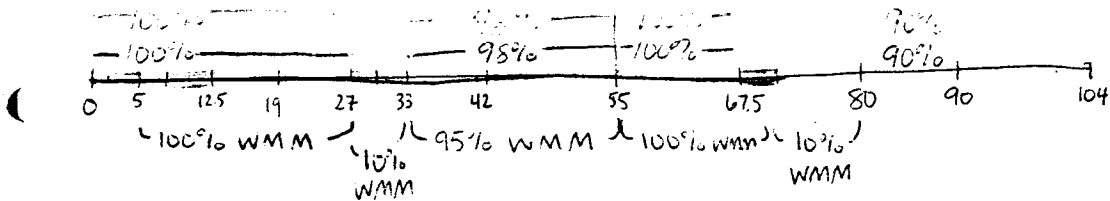 100% 98% 100% 90%
100% 98% 100% 90%
0 5 12.5 19 27 33 42 55 67.5 80 90 104
100% WMM 95% WMM 100% WMM 10%
10% WMM
WMM